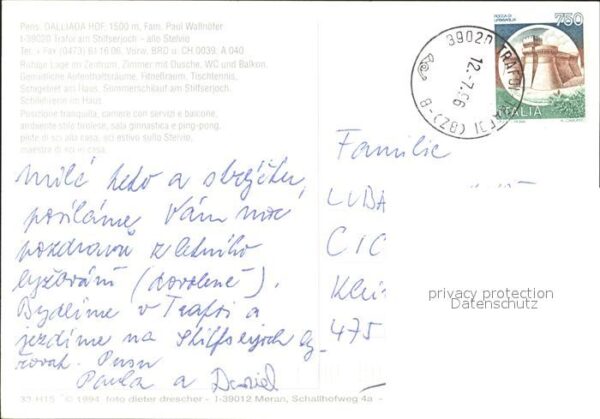 Pens. DALLIAGA HOF 1500 m, Fam. Paul Wallnöfer
I-39020 Trafoi am Stilfserjoch - alto Adige
Tel. + Fax (0473) 61 16 06, Vorw. BRD u. CH 0039, A 040
Ruhige Lage im Zentrum, Zimmer mit Dusche, WC und Balkon,
Gemütliche Aufenthaltsräume, Fitneßraum, Tischtennis,
Skigebiet am Haus, Sommerschilauf am Stilfserjoch.
Schilehrerin im Haus
Posizione tranquilla, camere con servizi e balcone,
ambiente stile tirolese, sala ginnastica e ping-pong,
piste di sci alla casa, sci estivo sullo Stelvio,
maestra di sci in casa.
Milá teto a strejčku,
posíláme Vám moc
pozdravů z letního
lyžování (dovolené).
Bydlíme v Trafoi a
jezdíme na Stilfserjoch ly-
žovat. Pusu
Pavla a Daniel
33 H15 © 1994 foto dieter drescher - I-39012 Meran, Schallhofweg 4a -
39020 TRAFOI
12-7.96
750
ITALIA
Familie
LUBA
CIC
Klei
475
privacy protection
Datenschutz